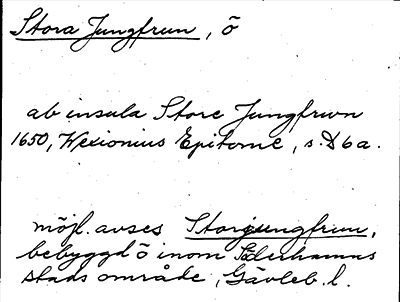 Stora Jungfrun, ö
ab insula Store Jungfrwn
1650, Wexionius Epitome, s. D6a.
möjl. avses Storjungfrun,
bebyggd ö inom Söderhamns
stads område, Gävleb. l.